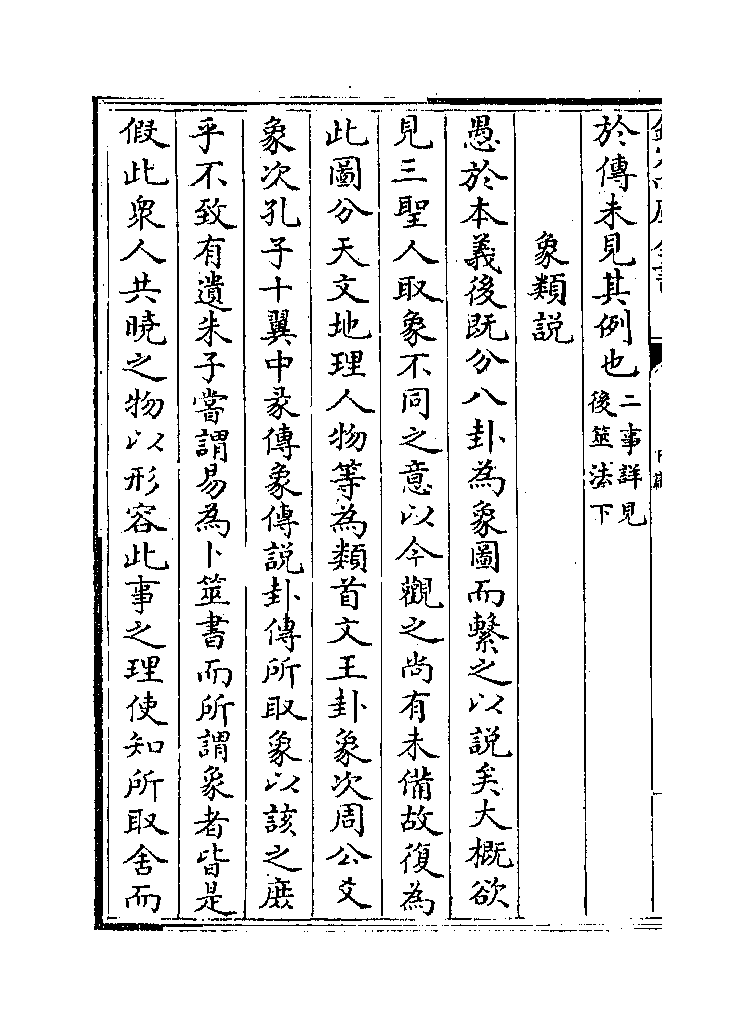 於傳未見其例也二事詳見後筮法下
象類説
愚於本義後既分八卦為象圖而繫之以説矣大概欲
見三聖人取象不同之意以今觀之尚有未備故復為
此圖分天文地理人物等為類首文王卦象次周公爻
象次孔子十翼中彖傳象傳説卦傳所取象以該之庶
乎不致有遺朱子嘗謂易為卜筮書而所謂象者皆是
假此衆人共曉之物以形容此事之理使知所取舍而